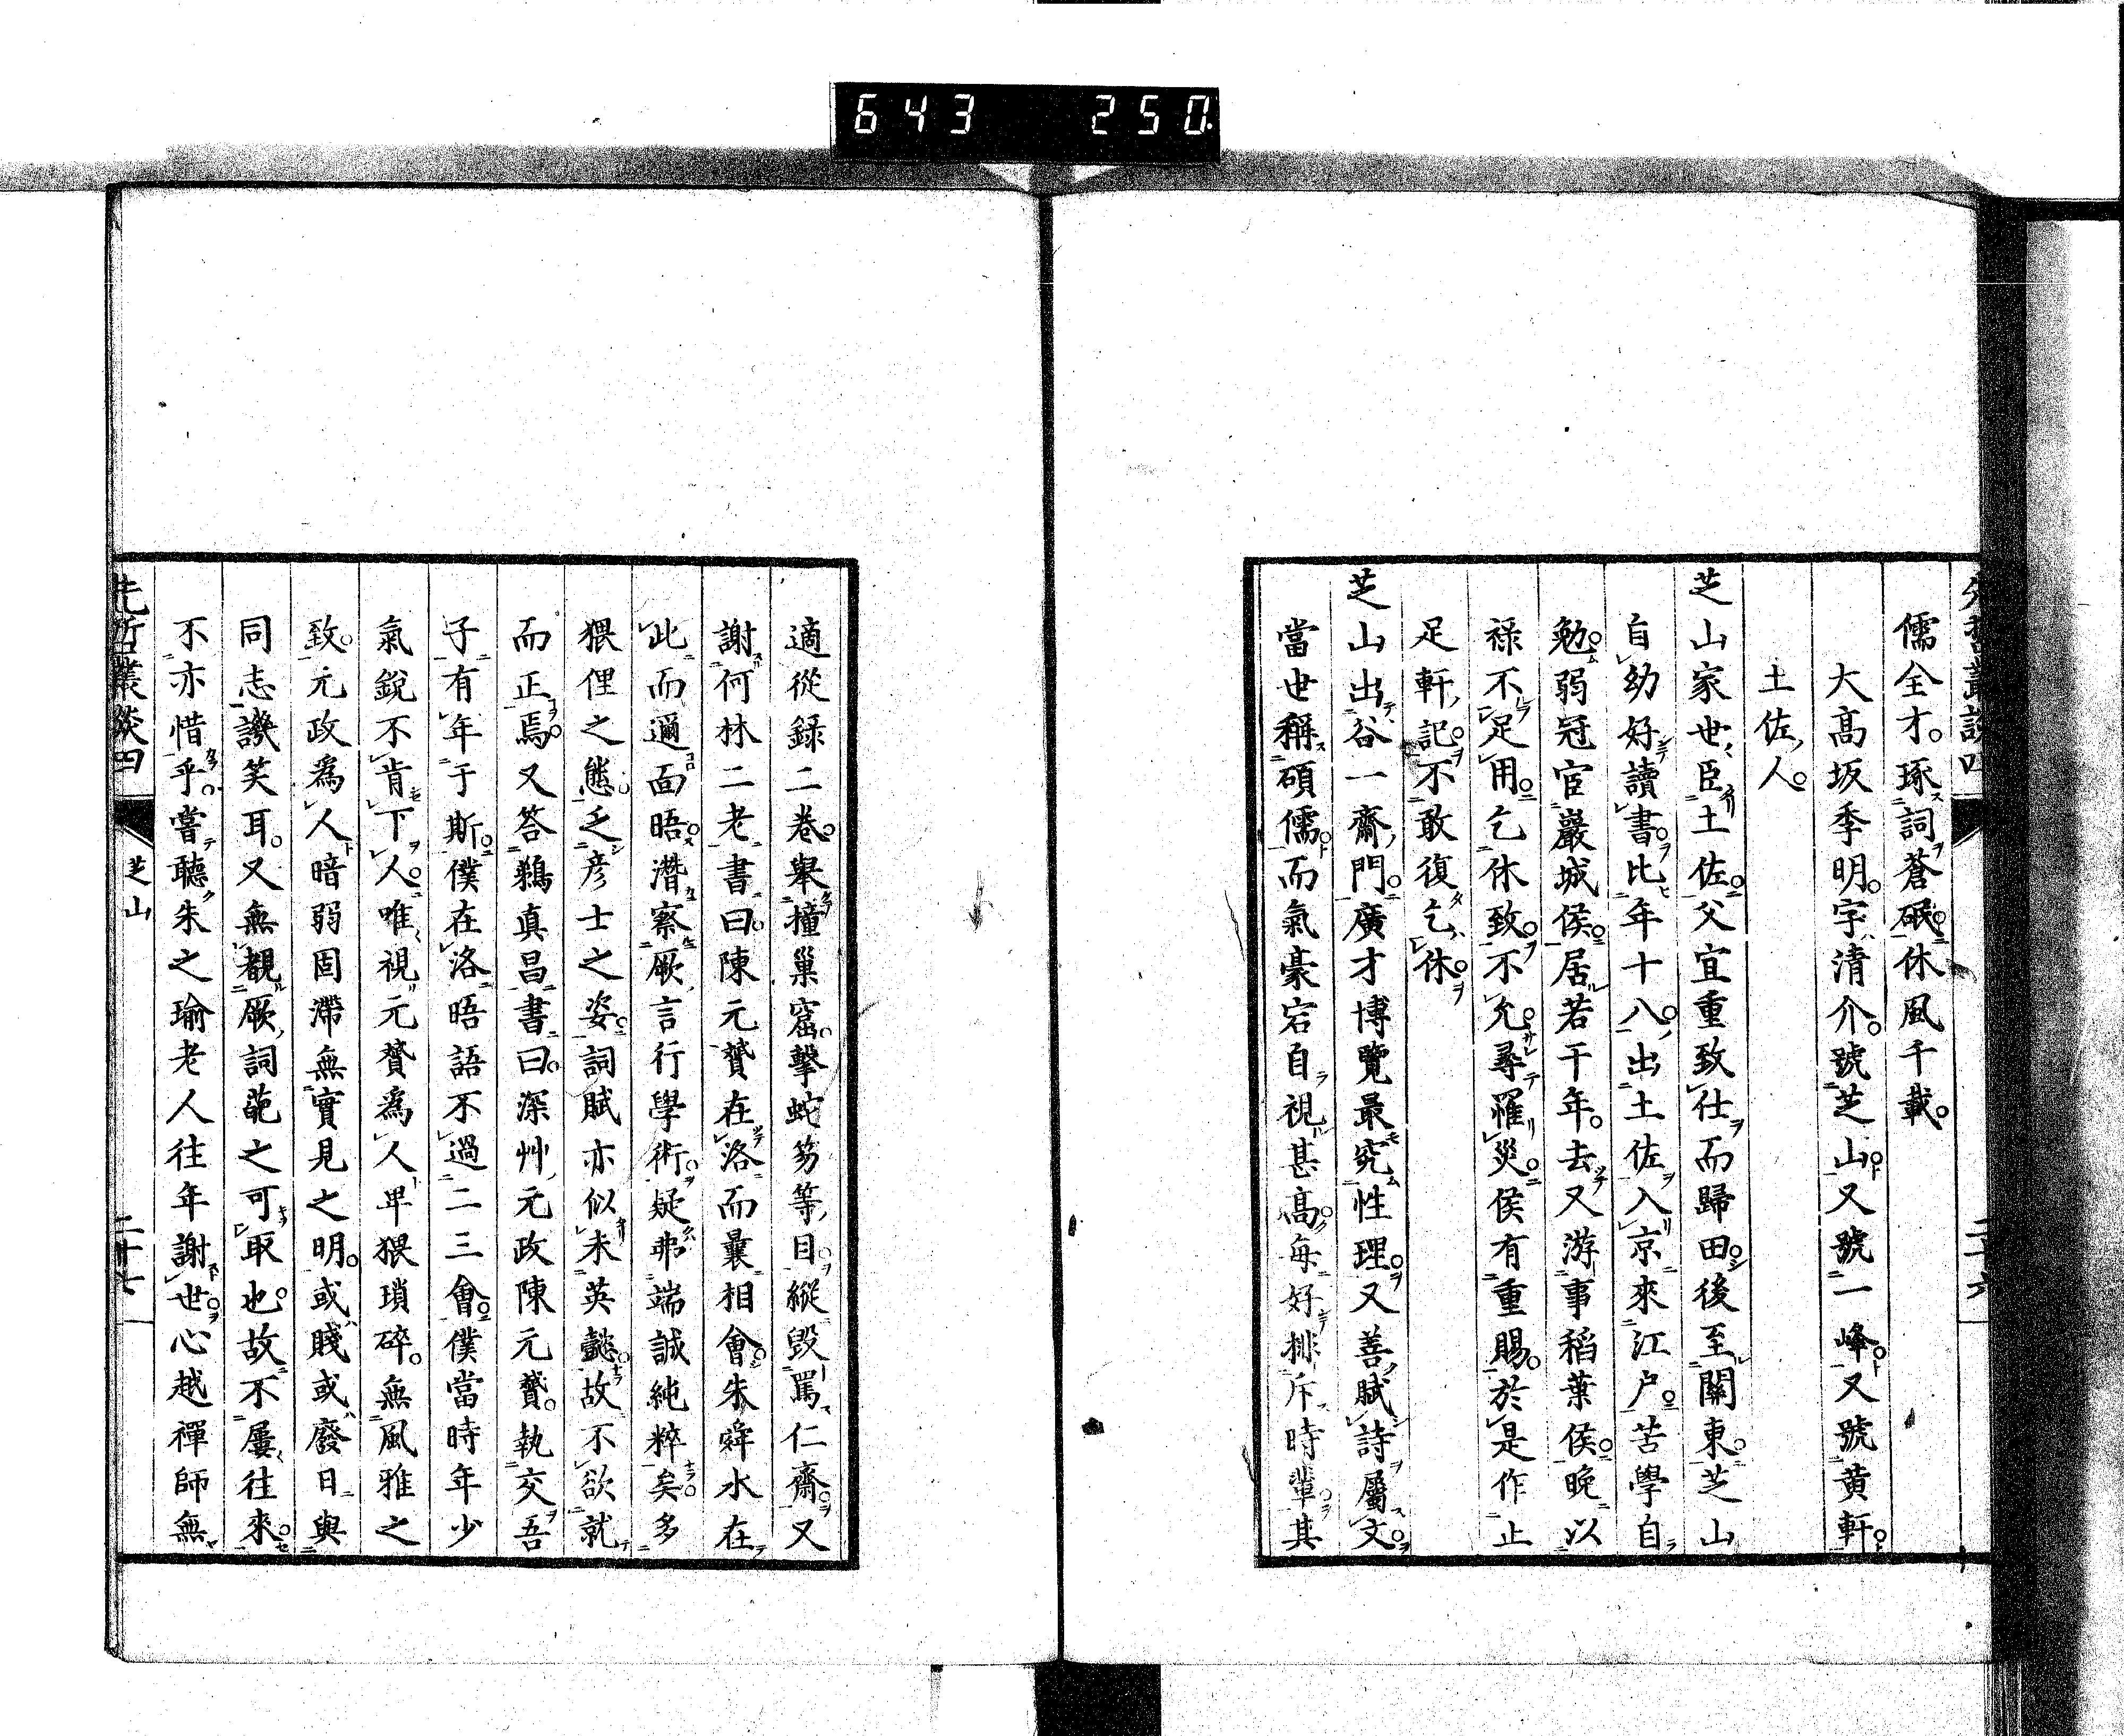 643 250
儒全才。琢詞蒼硯。休風千載。
大高坂季明。字清介。號芝山。又號一峰。又號黄軒。
土佐人。
芝山家世臣土佐。父宜重致仕而歸田。後至關東。芝山
自幼好讀書。比年十八。出土佐入京來江戸。苦學自
勉。弱冠宦巖城侯。居若干年。去又游事稻葉侯。晩以
禄不足用。乞休致。不允。尋罹災。侯有重賜。於是作止
足軒記。不敢復乞休。
芝山出谷一齋門。廣才博覽。最究性理。又善賦詩屬文。
當世稱碩儒。而氣豪宕自視甚高。毎好排斥時輩。其
適從録二卷。舉撞巣窟。擊蛇笏等目。縱毀罵仁齋。又
謝何林二老書曰。陳元贇在洛而曩相會。朱舜水在
此而邇面晤。潛察厥言行學術。疑弗端誠純粹矣。多
猥俚之態。乏彦士之姿。詞賦亦似未英懿。故不欲就
而正焉。又答鵜真昌書曰。深艸元政陳元贇。執交吾
子有年于斯。僕在洛晤語不過二三會。僕當時年少
氣鋭不肯下人。唯視元贇爲人卑猥瑣碎。無風雅之
致。元政爲人暗弱固滯無實見之明。或賤或廢日與
同志譏笑耳。又無覩厥詞葩之可取也。故不屢往來。
不亦惜乎。嘗聽朱之瑜老人往年謝世。心越禪師無
先哲叢談四
芝山
二十七